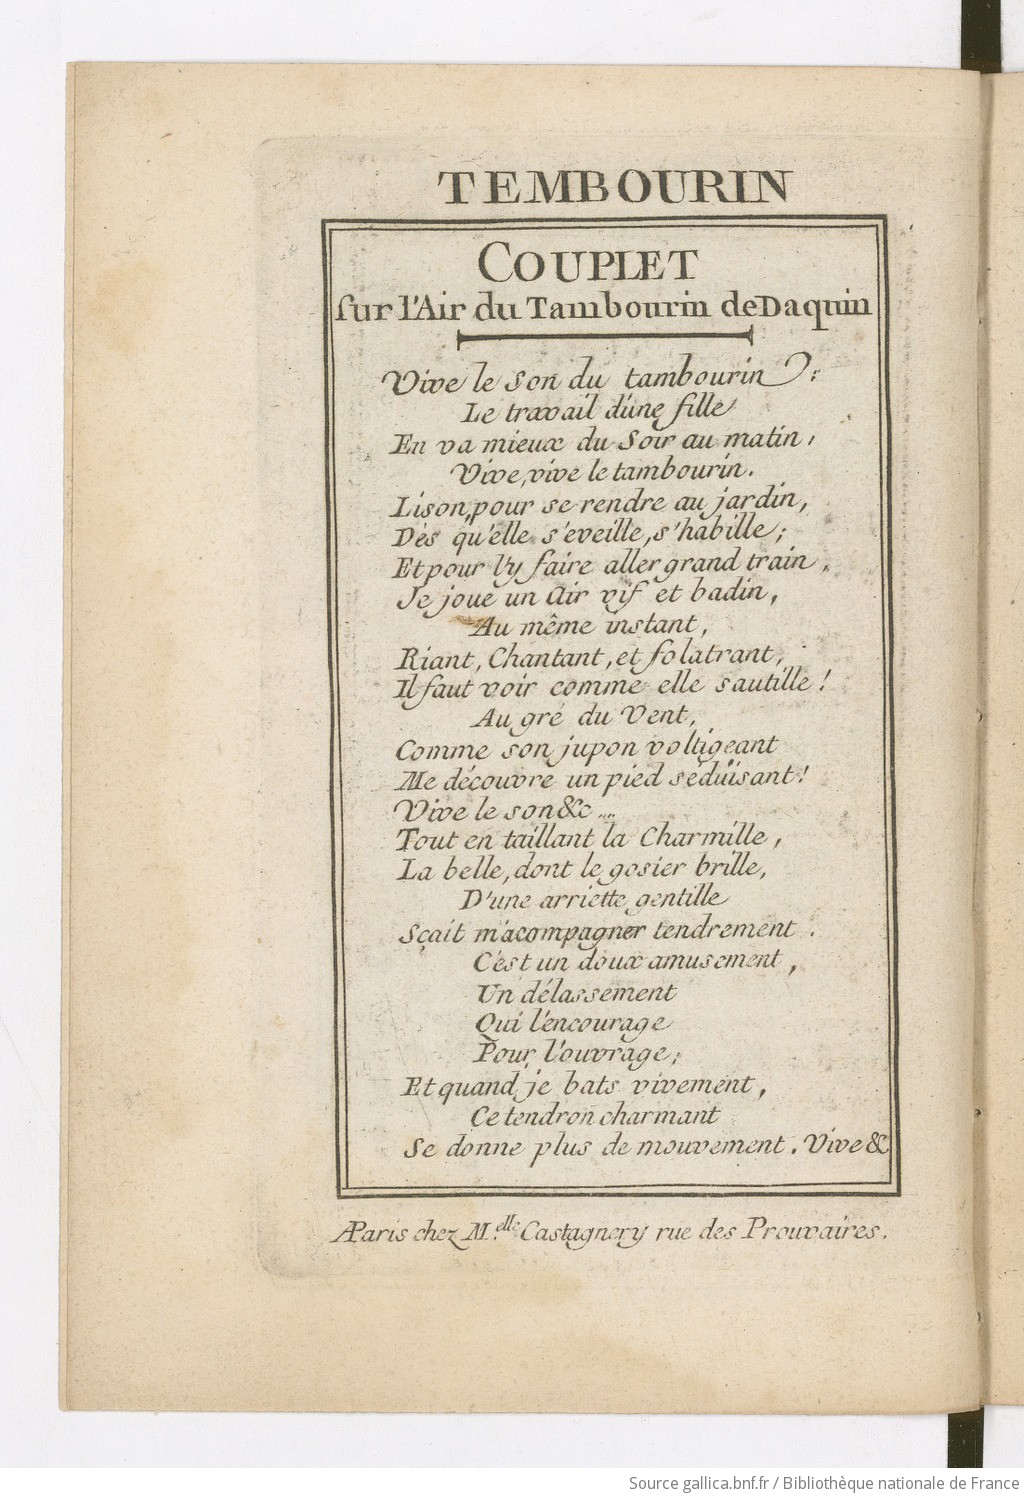 TEMBOURIN
COUPLET
sur l'Air du Tambourin de Daquin
Vive le Son du tambourin :
Le travail d'une fille
En va mieux du Soir au matin,
Vive, vive le tambourin.
Lison, pour se rendre au jardin,
Dès qu'elle s'eveille, s'habille;
Et pour l'y faire aller grand train,
Je joue un Air vif et badin,
Au même instant,
Riant, Chantant, et folatrant,
Il faut voir comme elle sautille!
Au gré du Vent,
Comme son jupon voltigeant
Me découvre un pied séduisant!
Vive le son &c ....
Tout en taillant la Charmille,
La belle, dont le gosier brille,
D'une arriette gentille
Sçait m'acompagner tendrement.
C'est un doux amusement,
Un délassement
Qui l'encourage
Pour l'ouvrage;
Et quand je bats vivement,
Ce tendron charmant
Se donne plus de mouvement. Vive &c
A Paris chez M.elle Castagnery rue des Prouvaires.
Source gallica.bnf.fr / Bibliothèque nationale de France